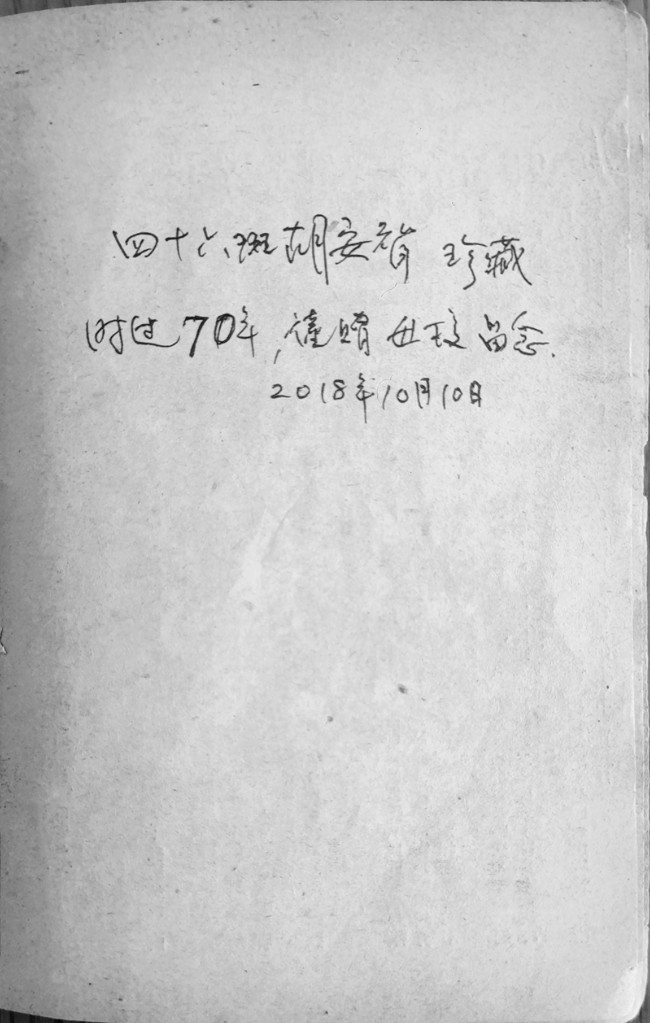 四十六班胡安 珍藏
时过70年,谨赠 留念.
2018年10月10日